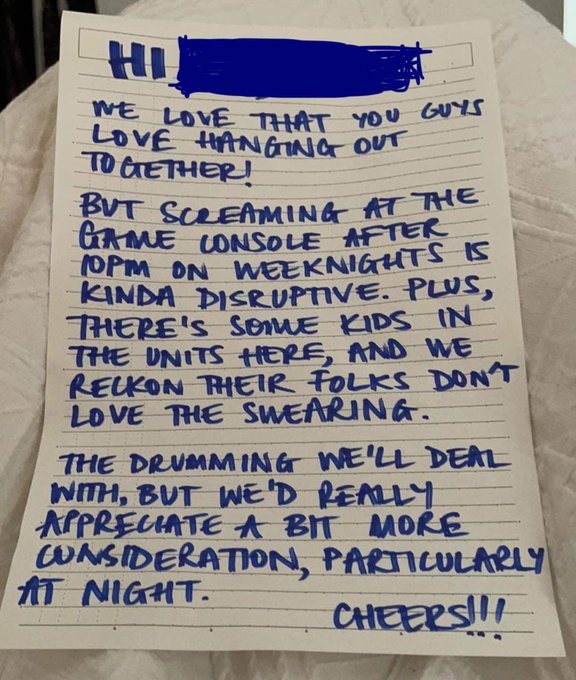 HI
WE LOVE THAT YOU GUYS
LOVE HANGING OUT
TOGETHER!
BUT SCREAMING AT THE
GAME CONSOLE AFTER
10PM ON WEEKNIGHTS IS
KINDA DISRUPTIVE. PLUS,
THERE'S SOME KIDS IN
THE UNITS HERE, AND WE
RECKON THEIR FOLKS DON'T
LOVE THE SWEARING.
THE DRUMMING WE'LL DEAL
WITH, BUT WE'D REALLY
APPRECIATE A BIT MORE
CONSIDERATION, PARTICULARLY
AT NIGHT.
CHEERS!!!